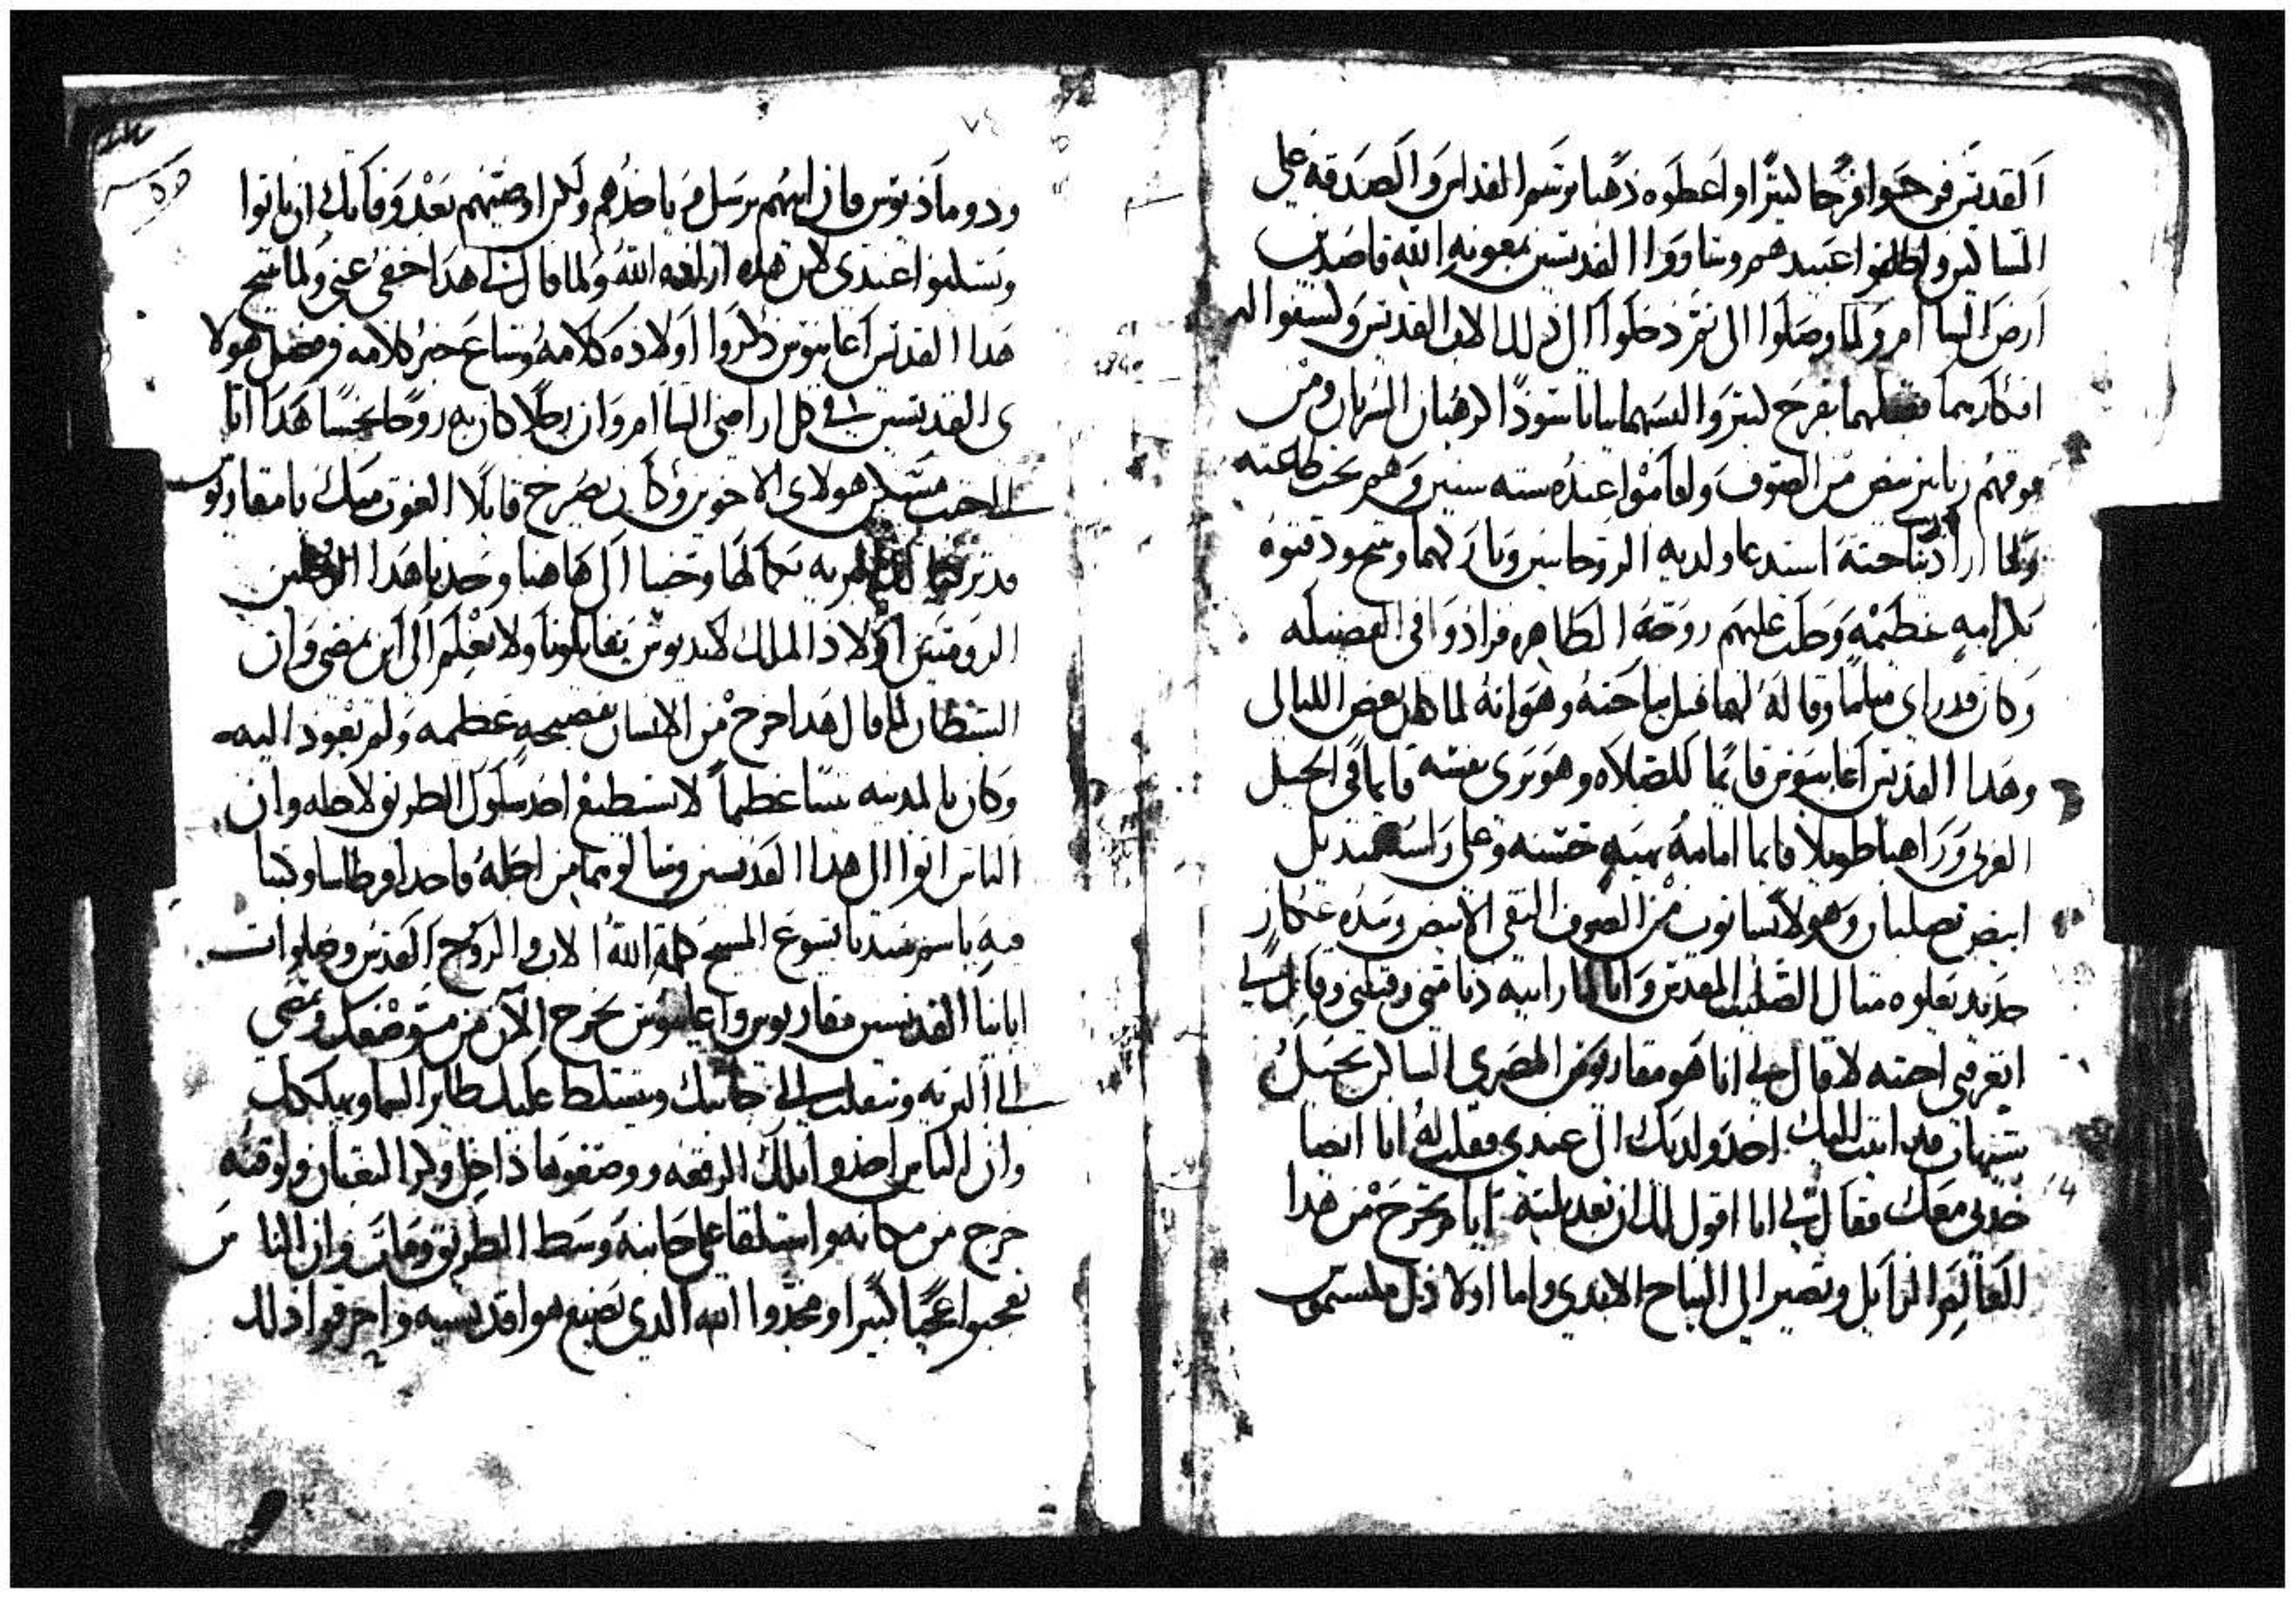 القديس فرحوا فرحا كبيرا واعطوه ذهبا برسم القداس والصدقه على
المساكين واطلقوا عبيدهم وساروا القديسين بمعونه الله قاصدين
ارض الشام ولما وصلوا الى ثم دخلوا الى ذلك الاب القديس وكشفوا له
افكارهما فقبلهما بفرح كبير والبسهما ثيابا سودا كرهبان السريان ومن
فوقهم زنانير بيض من الصوف واقاموا عنده سته سنين وهم تحت طاعته
ولما اراد نياحته استدعا ولديه الروحانيين وبارك لهما وتنيح ودفنوه
بكرامه عظيمه وحلت عليهم روحه الطاهره فزادوا في الفضيله
وكان قد راى مناما وقاله لهما قبل نياحته وهو انه لما كان بعض الليالي
وهدا القديس اغابيوس قايما للصلاه وهو يرى نفسه قايما في الجبل
الغربي وراهبا طويلا قايما امامه بهيبه حسنه وعلى راسه منديل
ابيض بصلبان وهو لابسا ثوب من الصوف النقي الابيض وبيده عكاز
حديد يعلوه مثال الصليب المقدس وانا لما رايته دنا مني وقبلني وقال لي
اتعرفني احبته لا قال لي انا هو مقاريوس المصري الساكن بجبل
شيهات قد اتيت اليك اخد ولديك الى عندي فقلت له انا ايضا
خدني معك فقال لي انا اقول لك ان بعد تلتة ايام تخرج من هدا
العالم الزايل وتصير الى النياح الابدي واما اولادك مكسيموس
ودوماديوس فان ابيهم يرسل من ياخدهم ولكن اوصيهم بعد وفاتك ان ياتوا
ويسكنوا عندي لان هده اراده الله ولما قال لي هدا خفي عني ولما تنيح
هدا القديس اغابيوس دكروا اولاده كلامه وشاع خبر كلامه وفضل هولا
ى القديسين في كل اراضي الشام وان رجلا كان به روحا نجسا هدا اتا
الى حيث مسكن هولاى الاخوين وكان يصرخ قايلا الغوت منك يا مقاريوس
قد تركنا لك البريه بكمالها وجينا الى هاهنا وجدنا هدا الرجلين
الروميين اولاد الملك لانديوس يقاتلونا ولا نعلم الى اين نمضي وان
الشيطان لما قال هدا خرج من الانسان بفضيحه عظيمه ولم يعود اليه
وكان بالمدينه تنينا عظيما لا يستطيع احد سلوك الطريق لاجله وان
الناس اتوا الى هدا القديسين وسالوهما من اجله فاخدا قرطاسا وكتبا
فيه باسم سيدنا يسوع المسيح كلمة الله الاب والروح القدس وصلوات
ابانا القديسين مقاريوس واغابيوس تخرج الان من موضعك وتمضي
الى البريه وتنقلب الى جانبك ويتسلط عليك طاير السما وياكلك
وان الناس اخدوا تلك الرقعه ووضعوها داخل وكر التعبان ولوقته
خرج من مكانه واستلقا على جانبه وسط الطريق ومات وان الناس
تعجبوا عجبا كبيرا ومجدوا الله الدي يصنع هوا قديسيه واحرقوا دلك